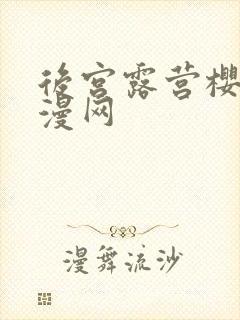 後宫露营樱
漫网
漫舞流沙